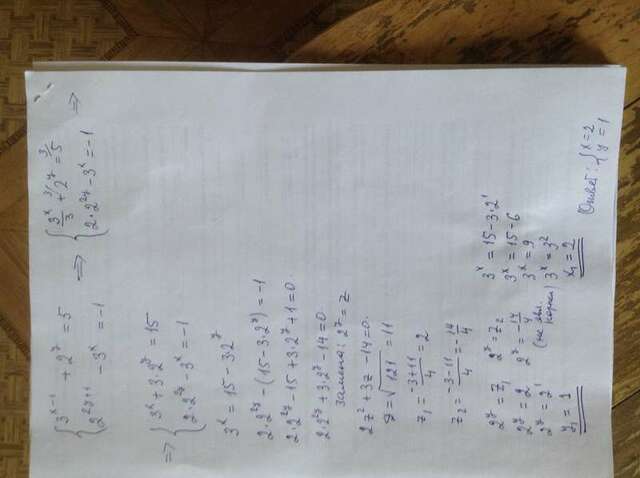 { 3^{x-1} + 2^y = 5
2^{2y+1} - 3^x = -1
=> { 3^x/3 + 2^y = 5 =>
2·2^{2y} - 3^x = -1
=> { 3^x + 3·2^y = 15
2·2^{2y} - 3^x = -1
3^x = 15 - 3·2^y
2·2^{2y} - (15 - 3·2^y) = -1
2·2^{2y} - 15 + 3·2^y + 1 = 0
2·2^{2y} + 3·2^y - 14 = 0
Замена: 2^y = z
2z² + 3z - 14 = 0
= √121 = 11
z₁ = (-3+11)/4 = 2
z₂ = (-3-11)/4 = -14/4
2^y = z₁
2^y = 2
2^y = 2¹
y₁ = 1
2^y = z₂
2^y = -14/4
(не явл.
корнем)
3^x = 15 - 3·2¹
3^x = 15 - 6
3^x = 9
3^x = 3²
x₁ = 2
Ответ: { x = 2
y = 1